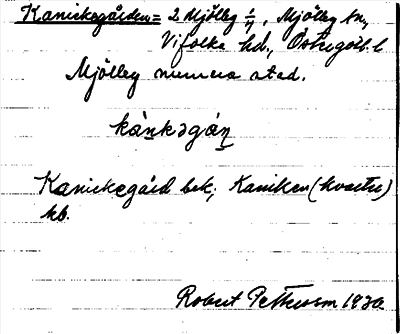 Kanickegården = 2 Mjölby 1/4, Mjölby sn,
Vifolka hd, Östergötl. l
Mjölby numera stad.
kánkəgán̥
Kanickegård bek; Kaniken (kvarter)
kb.
Robert Pettersson 1930